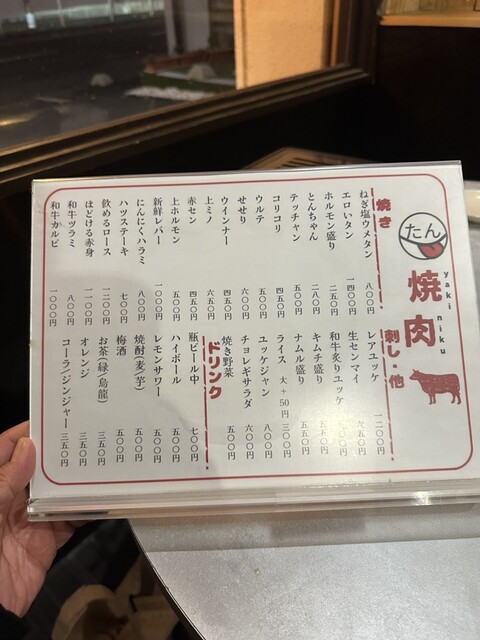 たん
焼肉
yaki niku
焼き
ねぎ塩ウメタン 八〇〇円
エロいタン 一四〇〇円
ホルモン盛り 二五〇〇円
とんちゃん 二八〇円
テッチャン 五〇〇円
コリコリ 四五〇円
ウルテ 五〇〇円
せせり 六〇〇円
ウインナー 四五〇円
上ミノ 六五〇円
赤セン 四五〇円
上ホルモン 五〇〇円
新鮮レバー 一〇〇〇円
にんにくハラミ 八〇〇円
ハツステーキ 七〇〇円
飲めるロース 一二〇〇円
ほどける赤身 一一〇〇円
和牛ツラミ 八〇〇円
和牛カルビ 一〇〇〇円
刺し・他
レアユッケ 一二〇〇円
生センマイ 九五〇円
和牛炙りユッケ
キムチ盛り 五五〇円
ナムル盛り 五五〇円
ライス 大+50円 三〇〇円
ユッケジャン 八〇〇円
チョレギサラダ 六〇〇円
焼き野菜 五〇〇円
ドリンク
瓶ビール中 七〇〇円
ハイボール 五〇〇円
レモンサワー 五〇〇円
焼酎(麦/芋) 五〇〇円
梅酒 五〇〇円
お茶(緑/烏龍) 三五〇円
オレンジ 三五〇円
コーラ/ジンジャー 三五〇円